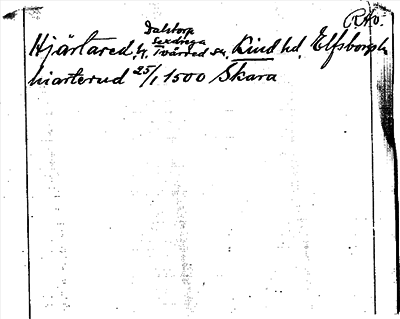 RAo.
Dalstorp
Sexdrega
Hjärtared, h. Tvärred sn, Kind hd, Elfsborgs l.
hiarterud 25/1 1500 Skara